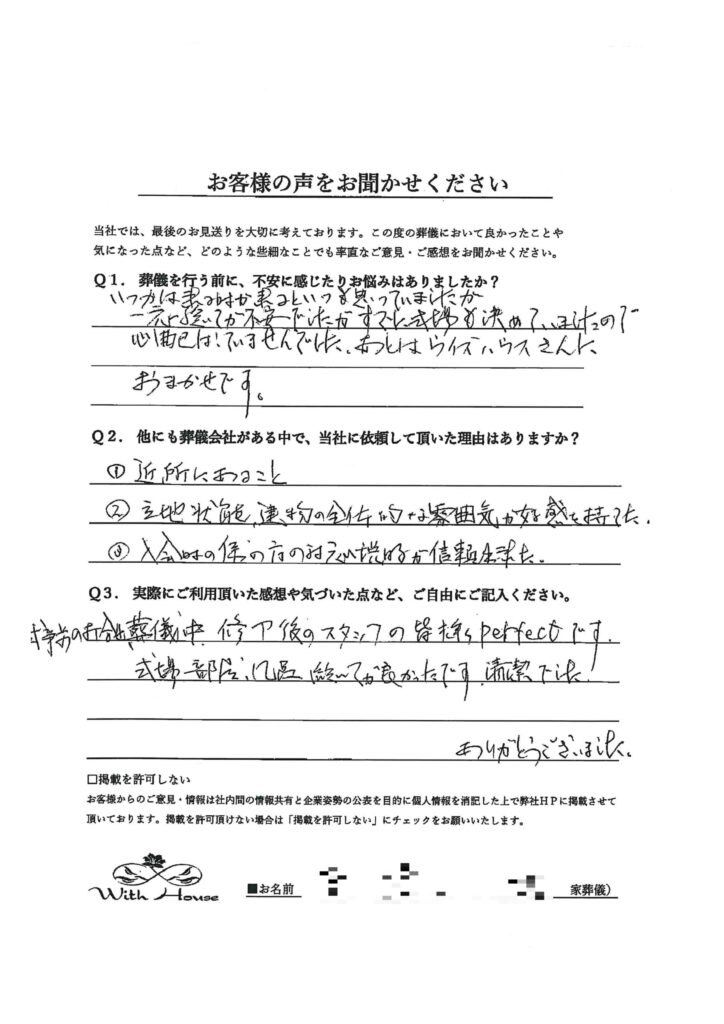 お客様の声をお聞かせください
当社では、最後のお見送りを大切に考えております。この度の葬儀において良かったことや
気になった点など、どのような些細なことでも率直なご意見・ご感想をお聞かせください。
Q1. 葬儀を行う前に、不安に感じたりお悩みはありましたか？
いつかは来る時が来るといつも思っていましたが
総てが不安でしたがすでに式場も決めていましたので
心配はしていませんでした。あとはウィズハウスさんに
おまかせです。
Q2. 他にも葬儀会社がある中で、当社に依頼して頂いた理由はありますか？
① 近所にあること
② 立地状態、建物の全体的な雰囲気が好感を持てた。
③ 入会時の係の方の対応説明が信頼出来た。
Q3. 実際にご利用頂いた感想や気づいた点など、ご自由にご記入ください。
事前の打合せ葬儀中、修了後のスタッフの皆様perfectです。
式場、部屋、総てが良かったです、清潔でした！
ありがとうございました。
□掲載を許可しない
お客様からのご意見・情報は社内間の情報共有と企業姿勢の公表を目的に個人情報を消記した上で弊社HPに掲載させて
頂いております。掲載を許可頂けない場合は「掲載を許可しない」にチェックをお願いいたします。
With House
■お名前 家葬儀）